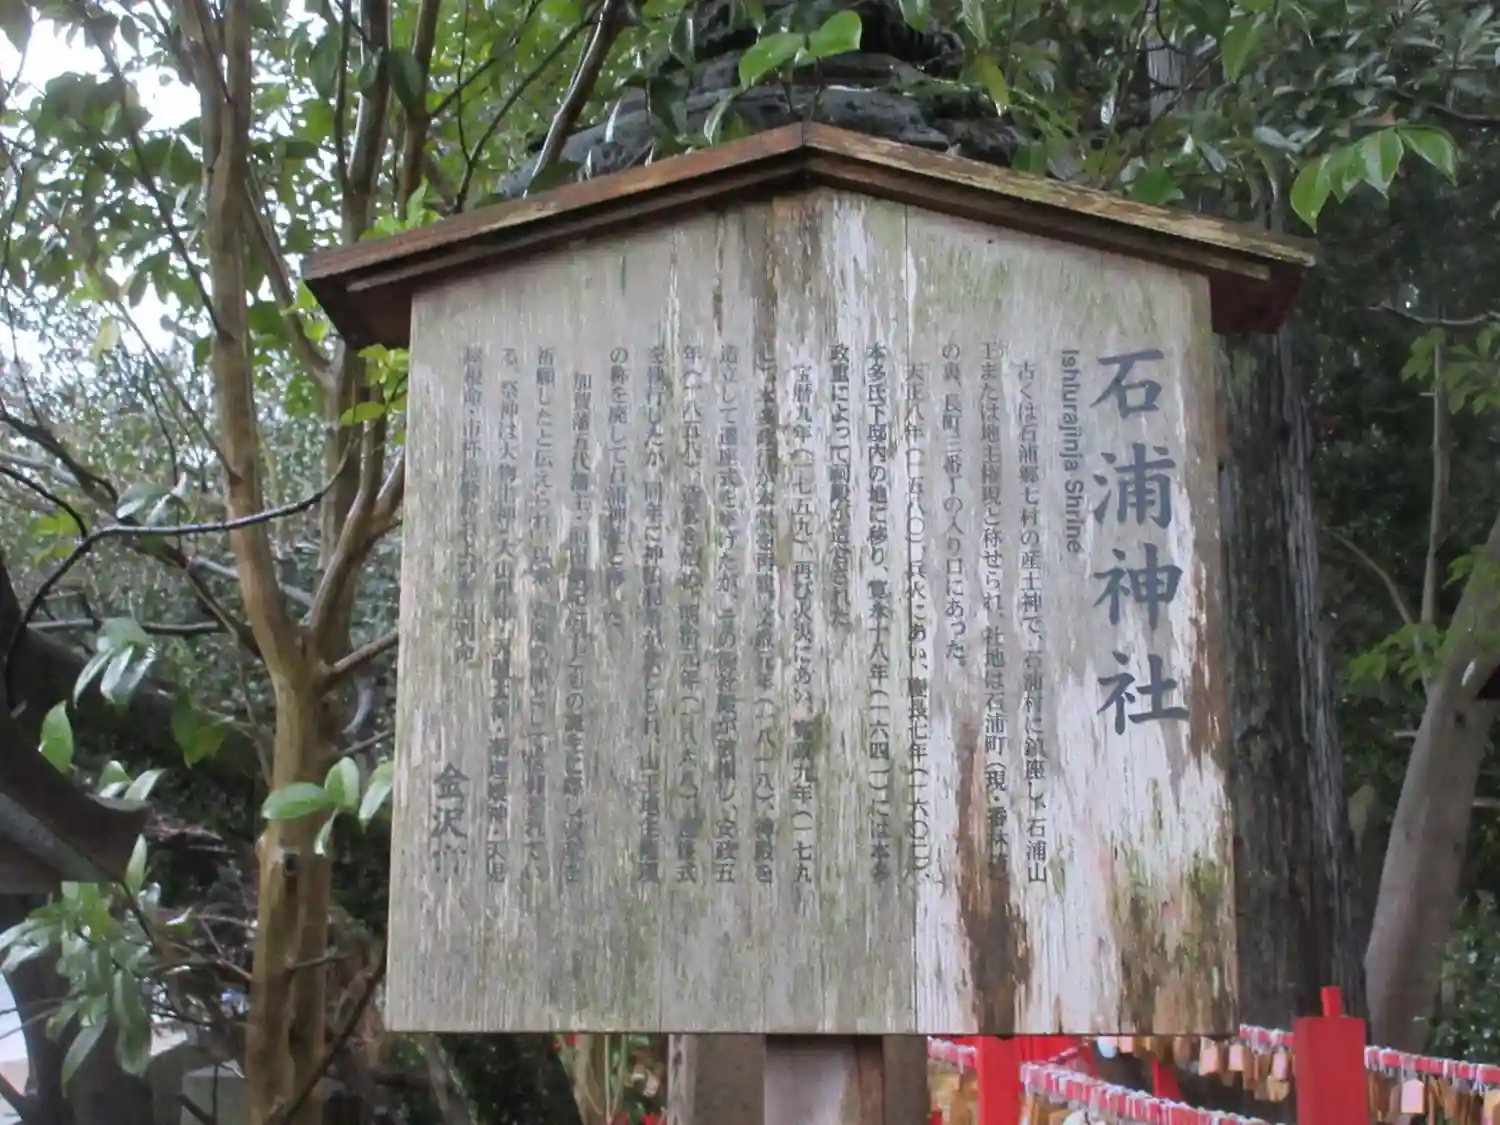 石浦神社
Ishiurajinja Shrine
古くは石浦郷七村の産土神で、石浦村に鎮座し、石浦山
王または地主権現と称せられ、社地は石浦町（現・香林坊）
の裏、長町三番丁の入り口にあった。
天正八年（一五八〇）、兵火にあい、慶長七年（一六〇二）、
本多氏下邸内の地に移り、寛永十八年（一六四一）には本多
政重によって祠殿が造営された。
宝暦九年（一七五九）、再び火災にあい、寛政九年（一七九
本多政行が本殿を再建、文政元年（一八一八）、神殿を
造立して遷座式を挙げたが、その後社殿が破損し、安政五
年（一八五八）改築を始め、明治元年（一八六八）遷座式
を執行したが、同年に神仏混淆が禁じられ、山王地主権現
の称を廃して石浦神社と称した。
加賀藩五代藩主・前田綱紀
祈願したと伝えられ、以来、
る。祭神は大物主神・大山咋神・
金沢市